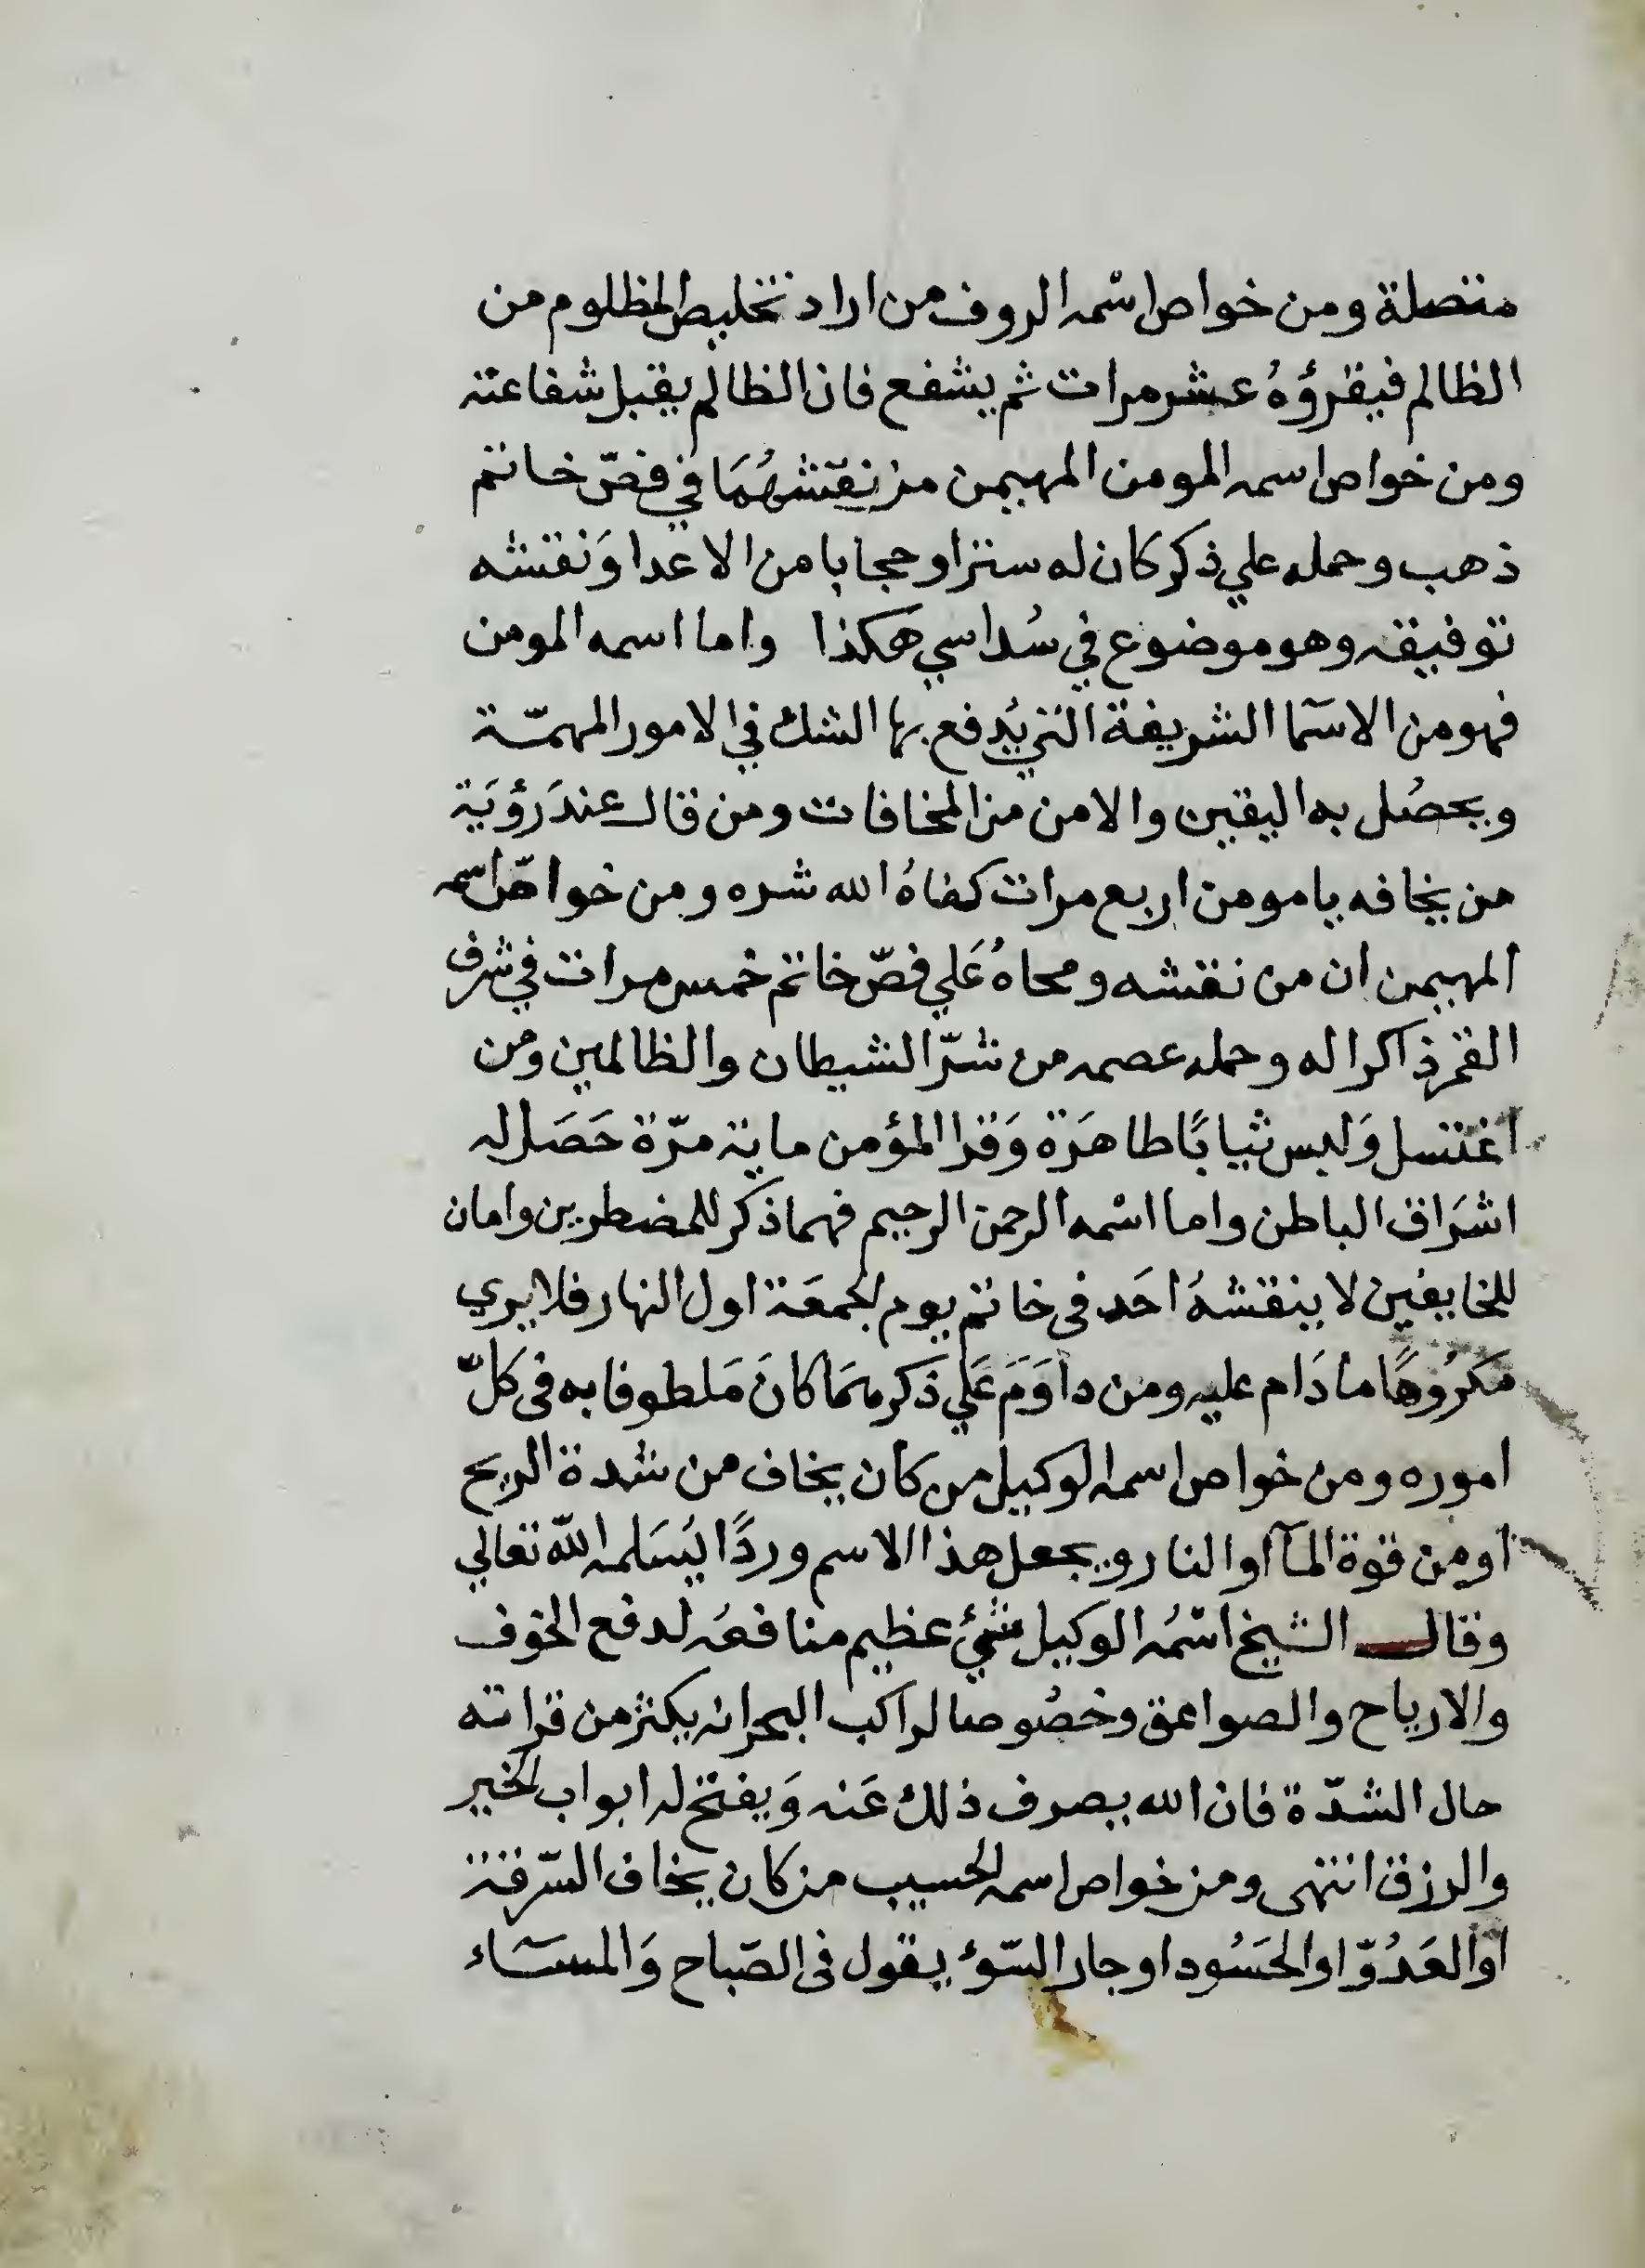 متصلة ومن خواص اسْمه الروف من اراد تخليص المظلوم من
الظالم فيقرؤهُ عشر مرات ثم يشفع فان الظالم يقبل شفاعته
ومن خواص اسمه المومن المهيمن من نقشهُمَا في فصّ خاتم
ذهب وحمله علي ذكر كان له سترا وحجابا من الاعدا وَنقشه
توفيقه وهو موضوع في سُداسي هكذا واما اسمه المومن
فهو من الاسمآ الشريفة التي يُدفع بها الشك في الامور المهمّة
ويحصُل به اليقين والامن من المخافات ومن قال عندَ رؤيَة
من يخافه يا مومن اربع مرات كفاهُ الله شره ومن خواصّ اسمه
المهيمن ان من نقشه ومحاهُ عَلي فصّ خاتم خمس مرات في شرف
القمر ذاكرا له وحمله عصمه من شرّ الشيطان والظالمين ومن
اغتسل وَلبس ثيابًا طاهَرة وَقرا المؤمن ماية مرّة حَصَل له
اشرَاق الباطن واما اسْمه الرحمن الرحيم فهما ذكر للمضطرين وامان
للخايفين لا ينقشهُ احَد في خاتم يوم الجمعَة اول النهار فلا يري
مَكرُوهًا ما دَام عليه ومن داوَمَ عَلي ذَكرهمَا كانَ مَلطوفا به في كلّ
اموره ومن خواص اسمه الوكيل من كان يخاف من شدة الريح
او من قوة المآ او النار ويجعل هذا الاسم وردًا يُسَلمه الله تعالي
وقال الشيخ اسْمُه الوكيل شئ عظيم منافعُه لدفع الخوف
والارياح والصواعق وخصُوصا لراكب البحر انه يكثر من قراته
حال الشدّة فان الله يصرف ذلك عَنه وَيفتح له ابواب الخير
والرزق انتهى ومن خواص اسمه الحسيب من كان يخاف السّرقة
او العَدُوّ او الحَسُود او جار السّوء يقول في الصّباح وَالمسَآء